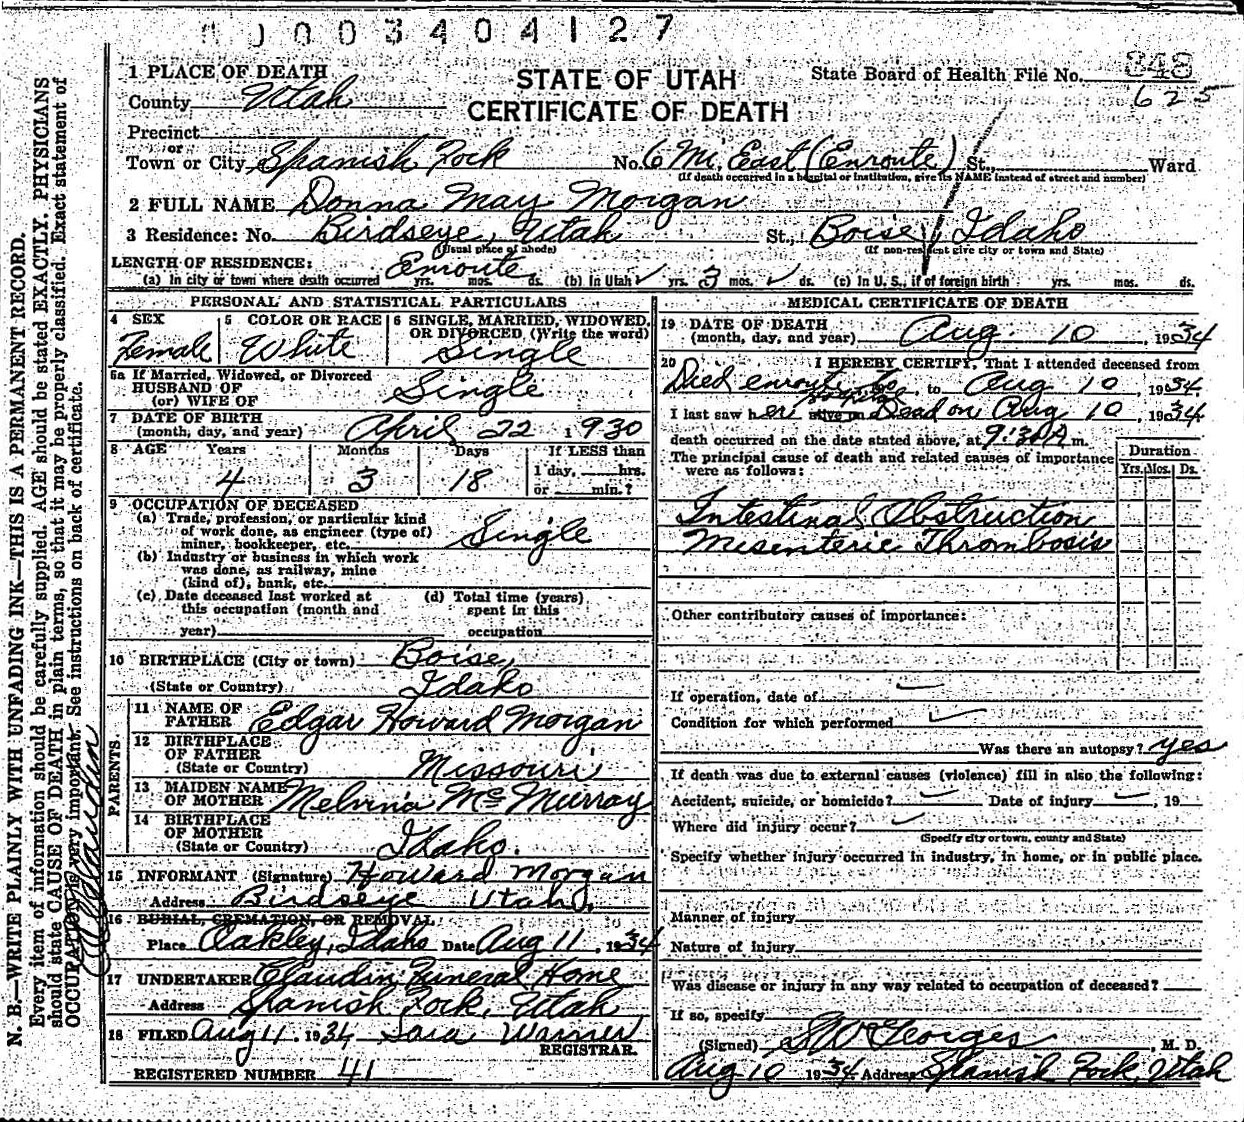 003404127
STATE OF UTAH
CERTIFICATE OF DEATH
State Board of Health File No. 348
625
1 PLACE OF DEATH
County Utah
Precinct
or
Town or City Spanish Fork No. 6 Mi. East (Enroute) St., Ward
(If death occurred in a hospital or institution, give its NAME instead of street and number)
2 FULL NAME Donna May Morgan
3 Residence: No. Birdseye, Utah St., Boise, Idaho
(Usual place of abode) (If non-resident give city or town and State)
LENGTH OF RESIDENCE:
(a) In city or town where death occurred Enroute yrs. mos. ds. (b) In Utah ✓ yrs. 3 mos. ✓ ds. (c) In U. S., if of foreign birth yrs. mos. ds.
PERSONAL AND STATISTICAL PARTICULARS
4 SEX Female
5 COLOR OR RACE White
6 SINGLE, MARRIED, WIDOWED, OR DIVORCED (Write the word) Single
5a If Married, Widowed, or Divorced
HUSBAND OF
(or) WIFE OF Single
7 DATE OF BIRTH
(month, day, and year) April 22 1930
8 AGE Years Months Days If LESS than
4 3 18 1 day, hrs.
or min.?
9 OCCUPATION OF DECEASED
(a) Trade, profession, or particular kind
of work done, as engineer (type of)
miner, bookkeeper, etc. Single
(b) Industry or business in which work
was done, as railway, mine
(kind of), bank, etc.
(c) Date deceased last worked at
this occupation (month and
year)
(d) Total time (years)
spent in this
occupation
10 BIRTHPLACE (City or town) Boise,
(State or Country) Idaho
PARENTS
11 NAME OF
FATHER Edgar Howard Morgan
12 BIRTHPLACE
OF FATHER
(State or Country) Missouri
13 MAIDEN NAME
OF MOTHER Melvina McMurray
14 BIRTHPLACE
OF MOTHER
(State or Country) Idaho.
15 INFORMANT (Signature) Howard Morgan
Address Birdseye Utah.
16 BURIAL, CREMATION, OR REMOVAL:
Place Oakley, Idaho Date Aug 11, 1934
17 UNDERTAKER Claudin Funeral Home
Address Spanish Fork, Utah
18 FILED Aug 11, 1934 Sara Warner
REGISTRAR.
REGISTERED NUMBER 41
MEDICAL CERTIFICATE OF DEATH
19 DATE OF DEATH
(month, day, and year) Aug. 10, 1934
20 I HEREBY CERTIFY, That I attended deceased from
Died enroute to Hospital, to Aug 10, 1934.
I last saw her alive on Dead on Aug 10, 1934
death occurred on the date stated above, at 9:30 A m.
The principal cause of death and related causes of importance
were as follows:
Duration
Yrs. Mos. Ds.
Intestinal Obstruction
Misenteric Thrombosis
Other contributory causes of importance:
If operation, date of ✓
Condition for which performed ✓
Was there an autopsy? yes
If death was due to external causes (violence) fill in also the following:
Accident, suicide, or homicide? ✓ Date of injury ✓, 19
Where did injury occur? ✓
(Specify city or town, county and State)
Specify whether injury occurred in industry, in home, or in public place.
Manner of injury
Nature of injury
Was disease or injury in any way related to occupation of deceased?
If so, specify
(Signed) Georges, M. D.
Aug 10 1934 Address Spanish Fork, Utah
N. B.—WRITE PLAINLY WITH UNFADING INK—THIS IS A PERMANENT RECORD.
Every item of information should be carefully supplied. AGE should be stated EXACTLY. PHYSICIANS
should state CAUSE OF DEATH in plain terms, so that it may be properly classified. Exact statement of
OCCUPATION is very important. See instructions on back of certificate.